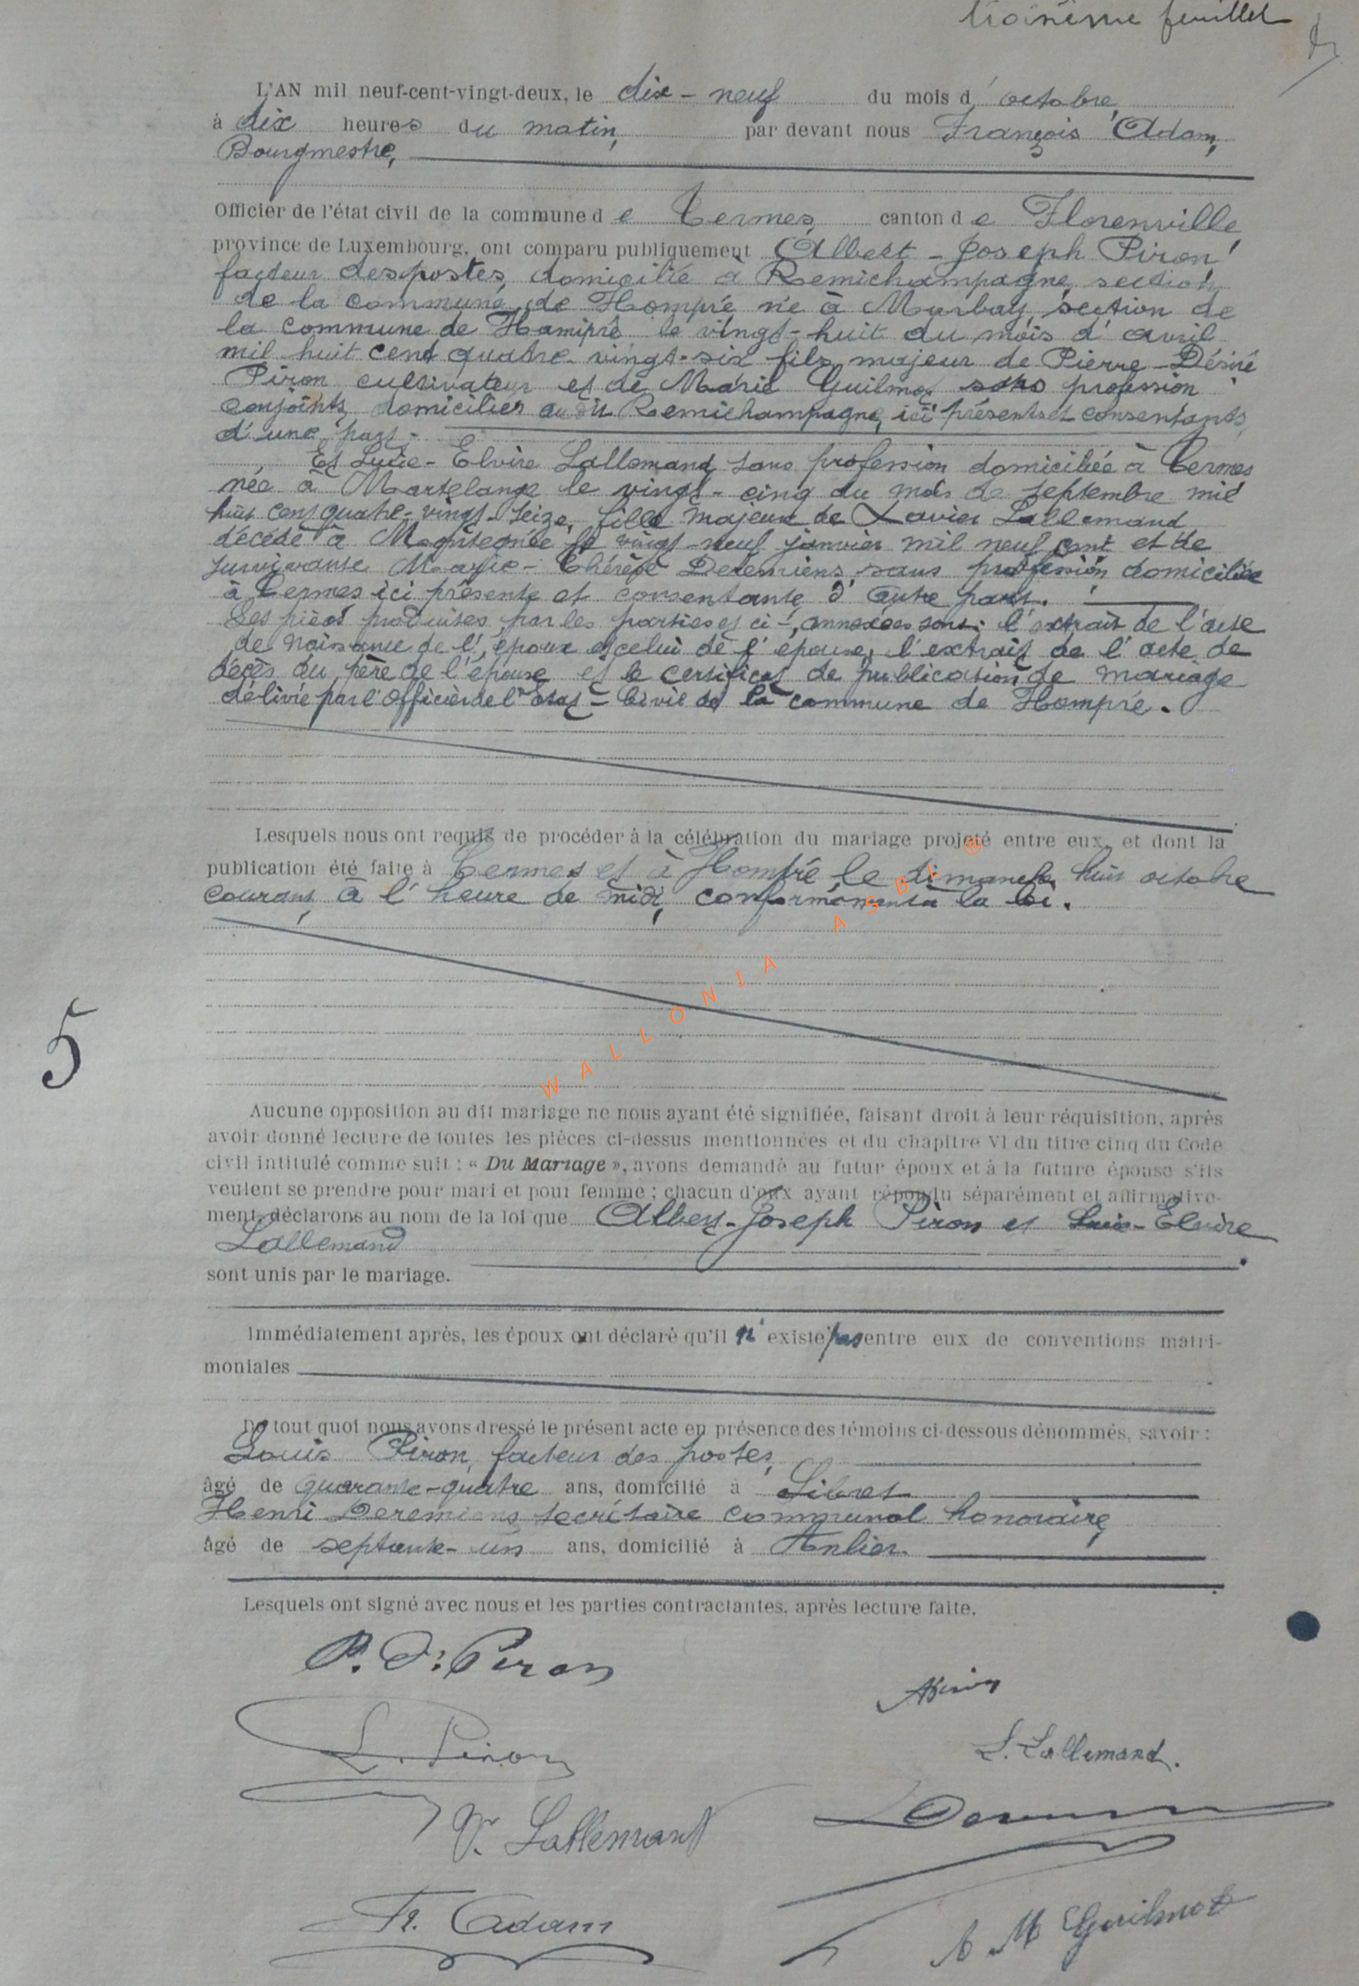 troisième feuillet
L'AN mil neuf-cent-vingt-deux, le dix-neuf du mois d'octobre,
à dix heures du matin, par devant nous François Adam,
Bourgmestre,
Officier de l'état civil de la commune de Termes, canton de Florenville,
province de Luxembourg, ont comparu publiquement Albert-Joseph Piron
facteur des postes, domicilié à Remichampagne, section
de la commune de Hompré né à Marbay, section de
la commune de Hamipré le vingt-huit du mois d'avril
mil huit cent quatre-vingt-six fils majeur de Pierre-Désiré
Piron cultivateur et de Marie Guilmot sans profession
conjoints, domiciliés audit Remichampagne, ici présents et consentants,
d'une part.
Et Lucie-Elvire Lallemand sans profession domiciliée à Termes
née à Martelange le vingt-cinq du mois de septembre mil
huit cent quatre-vingt-seize, fille majeure de Xavier Lallemand
décédé à le vingt-neuf janvier mil neuf cent et de
survivante Marie-Thérèse Deremiens sans profession domiciliée
à Termes ici présente et consentante d'autre part.
Les pièces produites par les parties et ci-annexées sont: l'extrait de l'acte
de naissance de l'époux et celui de l'épouse, l'extrait de l'acte de
décès du père de l'épouse et le certificat de publication de mariage
délivré par l'Officier de l'Etat-Civil de la commune de Hompré.
Lesquels nous ont requis de procéder à la célébration du mariage projeté entre eux, et dont la
publication été faite à Termes et à Hompré le dimanche huit octobre
courant, à l'heure de midi, conformément à la loi.
WALLONIA ASBL ©
5
Aucune opposition au dit mariage ne nous ayant été signifiée, faisant droit à leur réquisition, après
avoir donné lecture de toutes les pièces ci-dessus mentionnées et du chapitre VI du titre cinq du Code
civil intitulé comme suit : « Du Mariage », avons demandé au futur époux et à la future épouse s'ils
veulent se prendre pour mari et pour femme ; chacun d'eux ayant répondu séparément et affirmative-
ment, déclarons au nom de la loi que Albert-Joseph Piron et Lucie-Elvire
Lallemand
sont unis par le mariage.
Immédiatement après, les époux ont déclaré qu'il n'existe pas entre eux de conventions matri-
moniales
De tout quoi nous avons dressé le présent acte en présence des témoins ci-dessous dénommés, savoir :
Louis Piron, facteur des postes,
âgé de quarante-quatre ans, domicilié à Sibret
Henri Deremiens secrétaire communal honoraire,
âgé de septante-un ans, domicilié à Anlier.
Lesquels ont signé avec nous et les parties contractantes, après lecture faite.
P. D. Piron
APiron
L. Piron
L. Lallemand.
V. Lallemant
Fr. Adam
M Guilmot